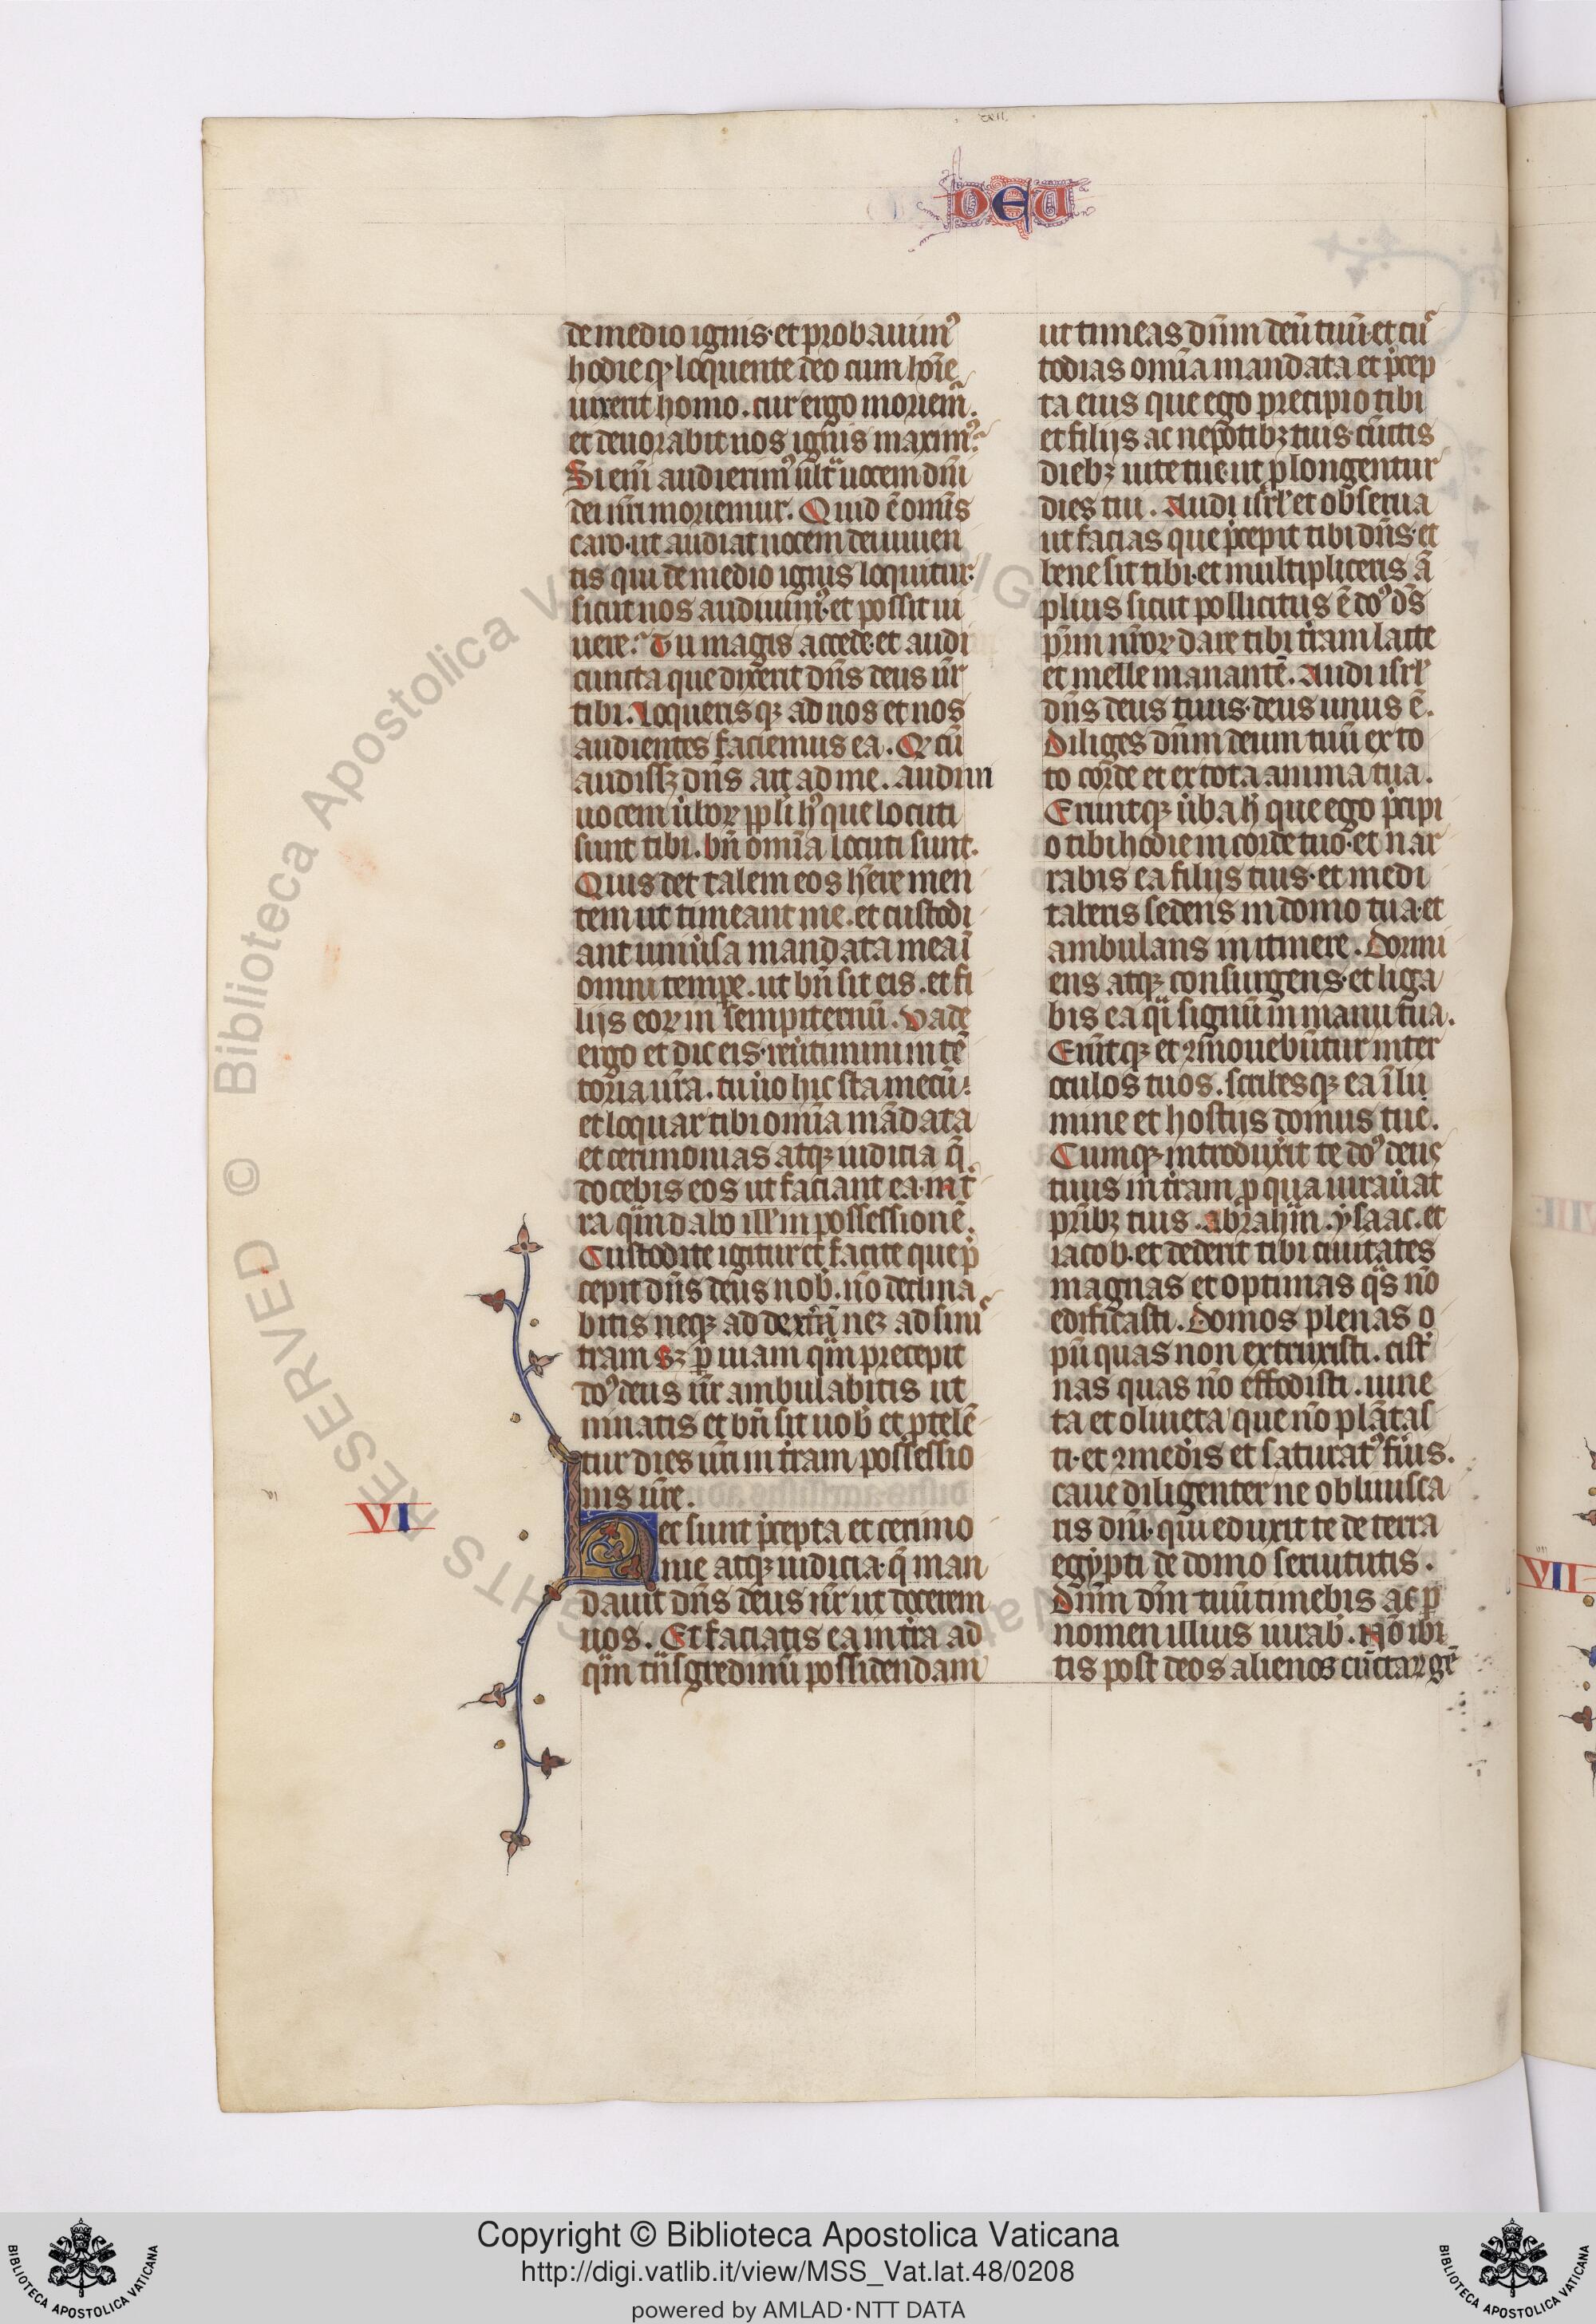 cxii
DEU
de medio ignis· et probauimꝰ
hodie qꝫ loquente deo cum hoīe
uixerit homo. cur ergo moriem̃.
et deuorabit nos ignis maximꝰ?
Si enī audierimꝰ ult̃ uocem dn̄i
dei nr̄i moriemur. Quid ē omīs
caro· ut audiat uocem dei uiuen
tis qui de medio ignis loquitur·
sicut nos audiuimꝰ· et possit ui
uere? Tu magis accede· et audi
cuncta que dixerit dn̄s deus ur̄
tibi. loquerisqꝫ ad nos et nos
audientes faciemus ea. Qꝫ cū
audissꝫ dn̄s ait ad me. audiui
uocem ūboꝝ ppl̄i hꝰ que locuti
sunt tibi. bn̄ omīa locuti sunt.
Quis det talem eos hēre men
tem ut timeant me. et custodi
ant uniūsa mandata mea ī
omni tempe. ut bn̄ sit eis. et fi
lijs eoꝝ in sempiternū. Vade
ergo et dic eis· reūtimini in tē
toria ur̄a. tu ūo hic sta mecū·
et loquar tibi omīa mādata
et cerimonias atqꝫ iudicia q̄
docebis eos ut faciant ea· in t̄
ra qm̄ dabo ill̄ in possessionē.
Custodite igitur et facite que p̄
cepit dn̄s deus nob̄. nō declina
bitis neqꝫ ad dext̄ā neꝫ ad sinis
tram sꝫ ꝑ uiam qm̄ precepit
doꝰ deus ur̄ ambulabitis ut
uiuatis et bn̄ sit uob̄ et ꝓtelē
tur dies ur̄i in t̄ram possessio
nis ur̄e.
VI
Hec sunt p̄cepta et cerimo
nie atqꝫ iudicia· q̄ man
dauit dn̄s deus ur̄ ut docerem
uos. Et faciatis ea in t̄ra ad
qm̄ t̄nsgredimī possidendam
ut timeas dn̄m deū tuū· et cus
todias omīa mandata et p̄cep
ta eius que ego precipio tibi
et filijs ac nepotibꝫ tuis cūctis
diebꝫ uite tue· ut ꝓlongentur
dies tui. Audi isrl̄ et obserua
ut facias que p̄cepit tibi dn̄s· et
bene sit tibi· et multipliceris ā
plius sicut pollicitus ē doꝰ ds̄
pr̄m nr̄oꝝ dare tibi t̄ram lacte
et melle manantē. Audi isrl̄
dn̄s deus tuus· deus unus ē.
Diliges dn̄m deum tuū ex to
to corde et ex tota anima tua.
Eruntqꝫ ūba hꝰ que ego p̄cipi
o tibi hodie in corde tuo· et nar
rabis ea filijs tuis· et medi
taberis sedens in domo tua· et
ambulans in itinere. Dormi
ens atqꝫ consurgens· et liga
bis ea q̄i signū in manu tua.
Erūtqꝫ et ꝯmouebūtur inter
oculos tuos. scribesqꝫ ea ī li
mine et hostijs domus tue.
Cumqꝫ introduxīt te doꝰ deus
tuus in t̄ram ꝓ qua iurauīt
pr̄ibꝫ tuis. abrahm̄. ysaac. et
iacob. et dederit tibi ciuitates
magnas et optimas q̄s nō
edificasti. Domos plenas o
pū quas non extruxisti. cist̄
nas quas nō effodisti. uine
ta et oliueta que nō plātas
ti· et ꝯmed̄is et saturatꝰ fūis.
caue diligenter ne obliuisca
ris dn̄i· qui eduxit te de terra
egypti de domo seruitutis.
Dn̄m dm̄ tuū timebis ac ꝑ
nomen illius iurab̄. Nō ibi
tis post deos alienos cūctaꝝ gē
VII
© Biblioteca Apostolica Vaticana
RIGHTS RESERVED
Copyright © Biblioteca Apostolica Vaticana
http://digi.vatlib.it/view/MSS_Vat.lat.48/0208
powered by AMLAD·NTT DATA
BIBLIOTECA APOSTOLICA VATICANA
BIBLIOTECA APOSTOLICA VATICANA